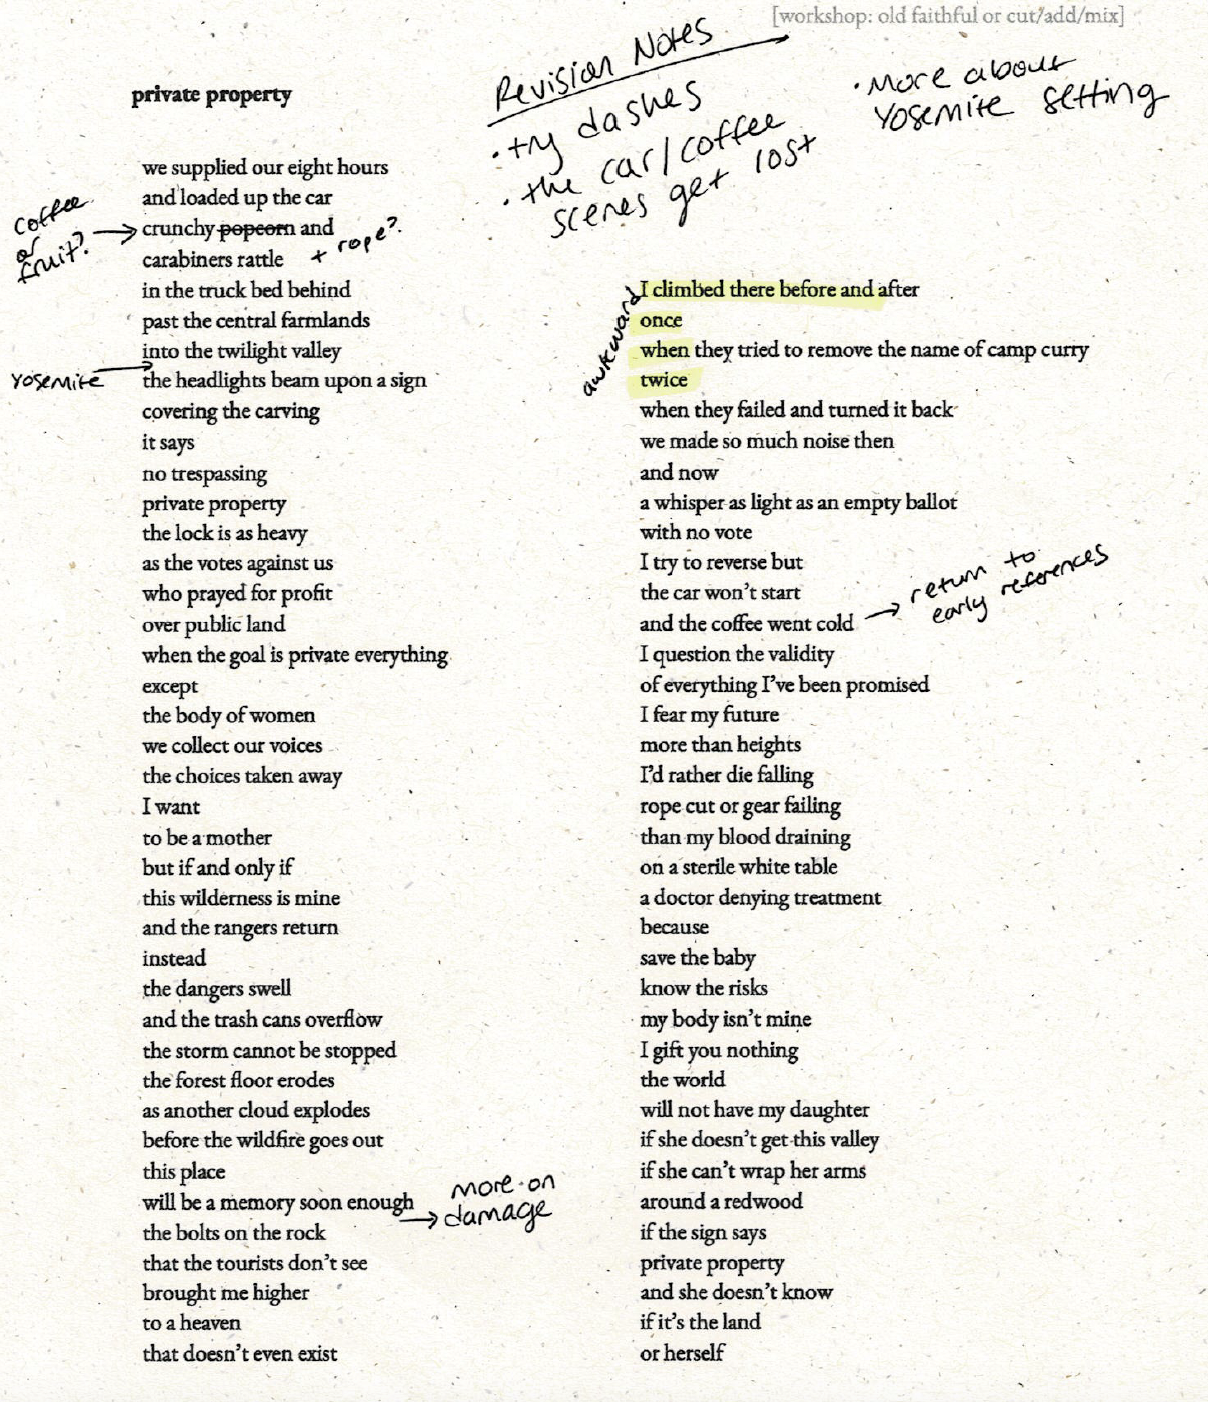 [workshop: old faithful or cut/add/mix]
Revision Notes
• try dashes
• the car/coffee
scenes get lost
• More about
Yosemite setting
private property
we supplied our eight hours
and loaded up the car
coffee
or
fruit?
crunchy popcorn and
carabiners rattle
+ rope?
in the truck bed behind
past the central farmlands
into the twilight valley
Yosemite
the headlights beam upon a sign
covering the carving
it says
no trespassing
private property
the lock is as heavy
as the votes against us
who prayed for profit
over public land
when the goal is private everything
except
the body of women
we collect our voices
the choices taken away
I want
to be a mother
but if and only if
this wilderness is mine
and the rangers return
instead
the dangers swell
and the trash cans overflow
the storm cannot be stopped
the forest floor erodes
as another cloud explodes
before the wildfire goes out
this place
will be a memory soon enough
more on
damage
the bolts on the rock
that the tourists don't see
brought me higher
to a heaven
that doesn't even exist
awkward
I climbed there before and after
once
when they tried to remove the name of camp curry
twice
when they failed and turned it back
we made so much noise then
and now
a whisper as light as an empty ballot
with no vote
I try to reverse but
the car won't start
and the coffee went cold
return to
early references
I question the validity
of everything I've been promised
I fear my future
more than heights
I'd rather die falling
rope cut or gear failing
than my blood draining
on a sterile white table
a doctor denying treatment
because
save the baby
know the risks
my body isn't mine
I gift you nothing
the world
will not have my daughter
if she doesn't get this valley
if she can't wrap her arms
around a redwood
if the sign says
private property
and she doesn't know
if it's the land
or herself